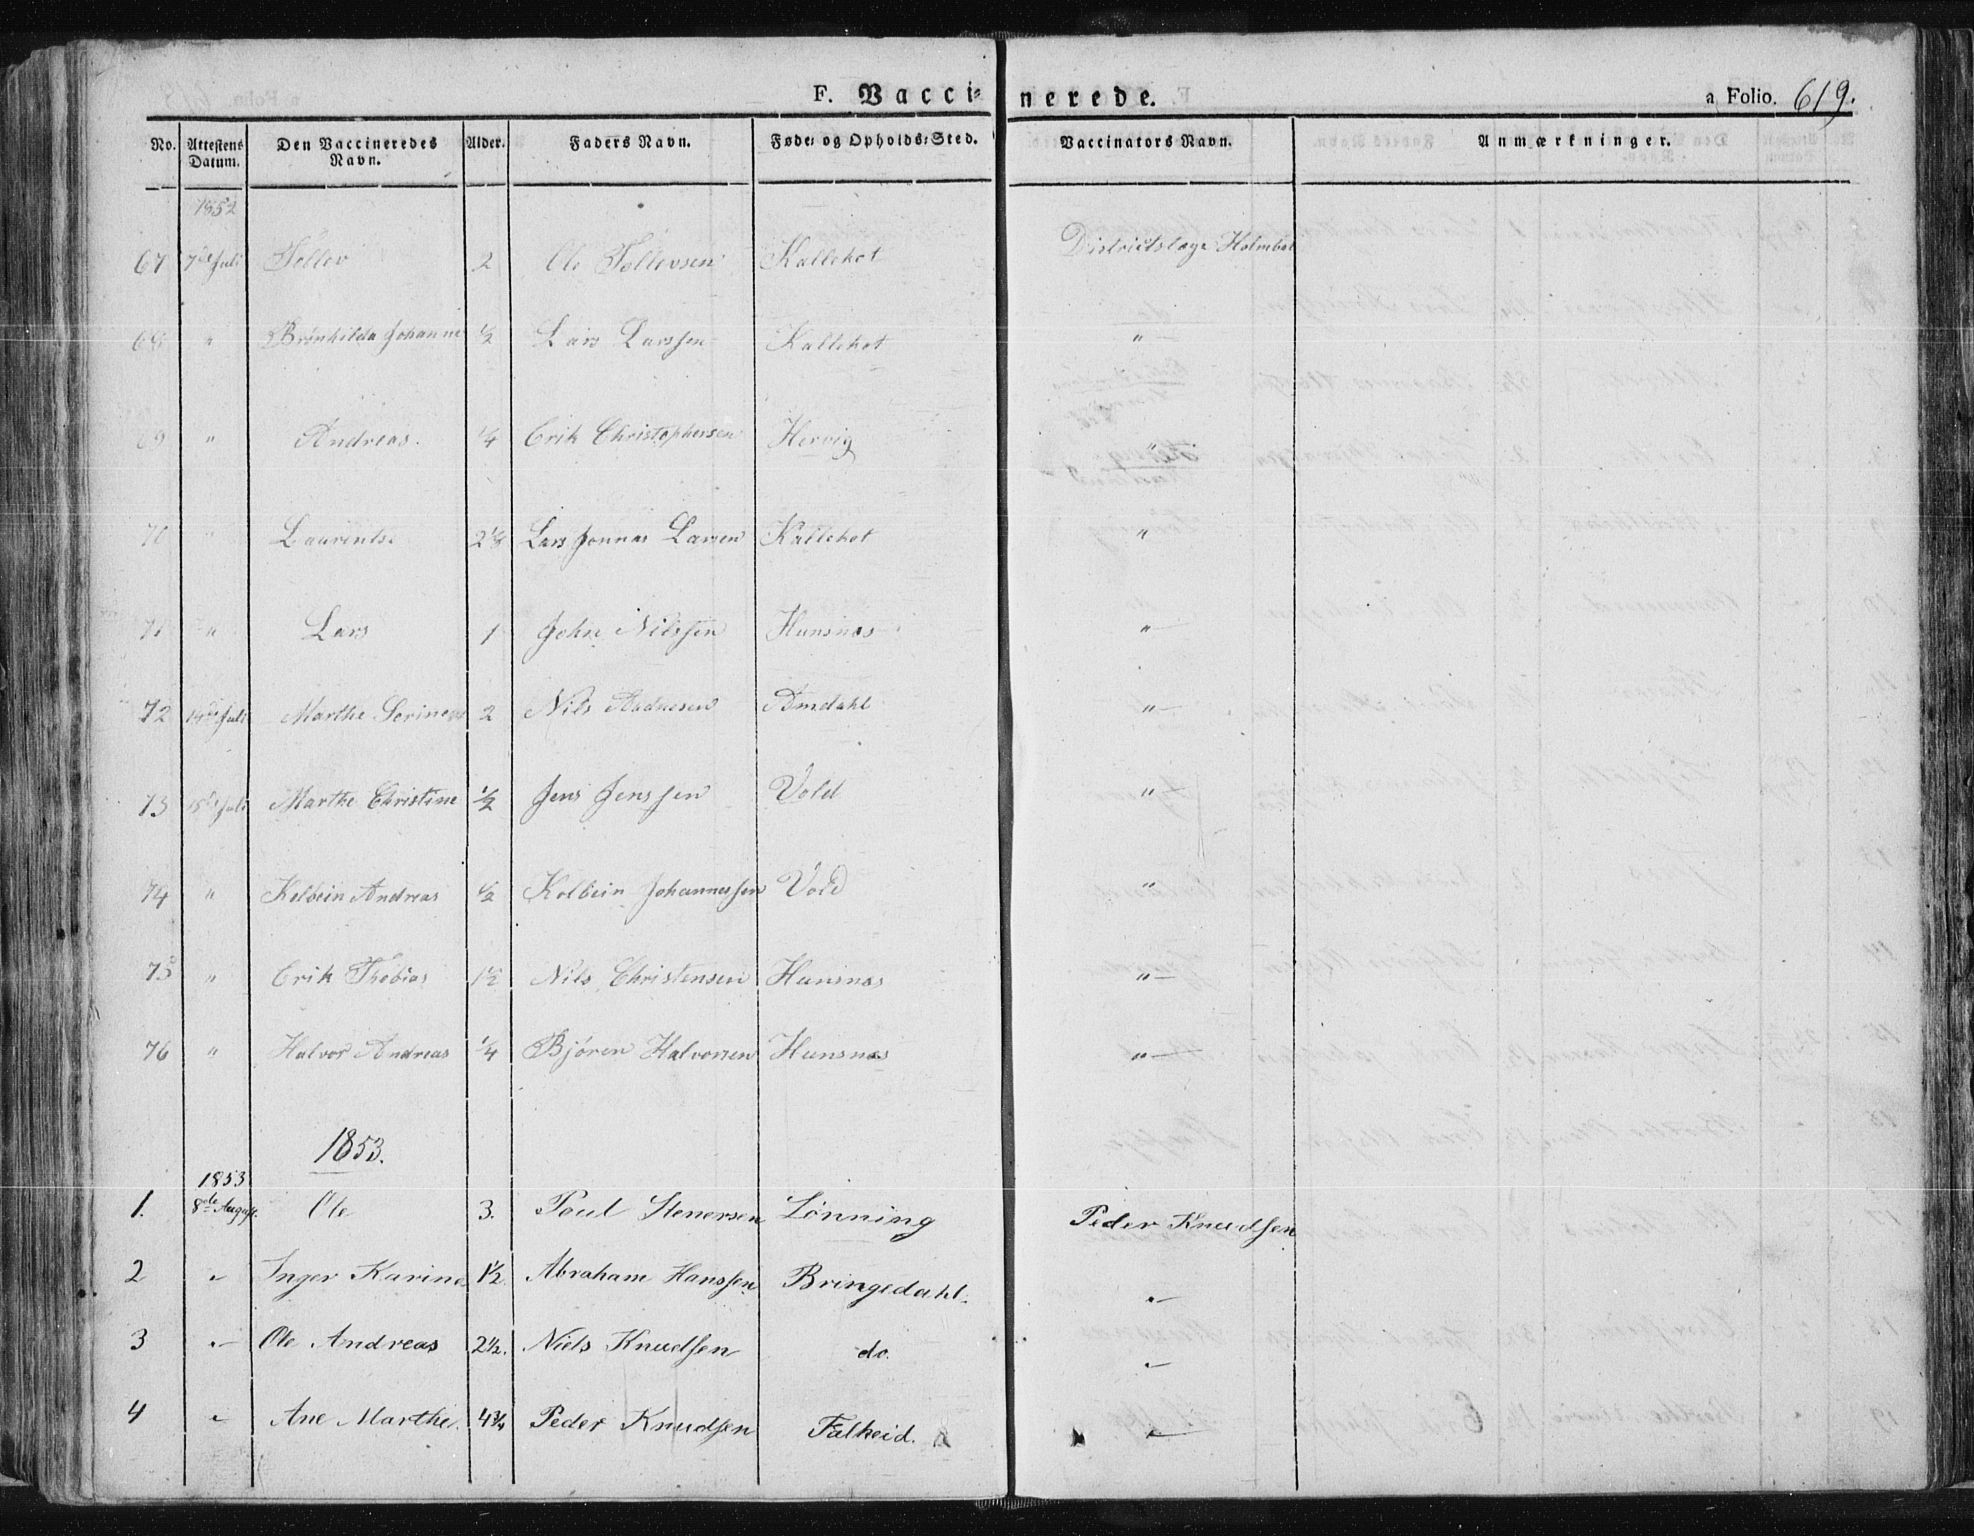 F. Vacci- nerede. a Folio. 619.
No. Attestens Datum. Den Vaccineredes Navn. Alder. Faders Navn. Føde- og Opholds-Sted. Vaccinators Navn. Anmærkninger.
1852
67 7de Juli Tollev 2 Ole Tollevsen Kallekot Districtslæge Holmboe
68 " Brønhilda Johanne 1/2 Lars Larssen Kallekot "
69 " Andreas. 1/4 Erik Christophersen Hervig
70 " Laurentse 2 1/2 Lars Jonnas Larsen Kallekot "
71 " Lars 1 John Nilssen Hunsnæs "
72 14de Juli Marthe Serine 2 Nils Andresen Amdahl "
73 15de Juli Marthe Christine 1/2 Jens Jenssen Vold "
74 " Kolbein Andreas 1/2 Kolbein Johannessen Vold "
75 " Erik Thobias 1 1/2 Nils Christensen Hunsnæs "
76 " Halvor Andreas 1/4 Bjøren Halvorsen Hunsnæs "
1853.
1853
1. 8de August. Ole 3. Poul Stenersen Lønning Peder Knudsen
2 " Inger Karine 1 1/2. Abraham Hanssen Bringedahl. "
3 " Ole Andreas 2 1/2. Niels Knudsen do. "
4 " Ane Marthe. 4 3/4 Peder Knudsen Falkeid. "